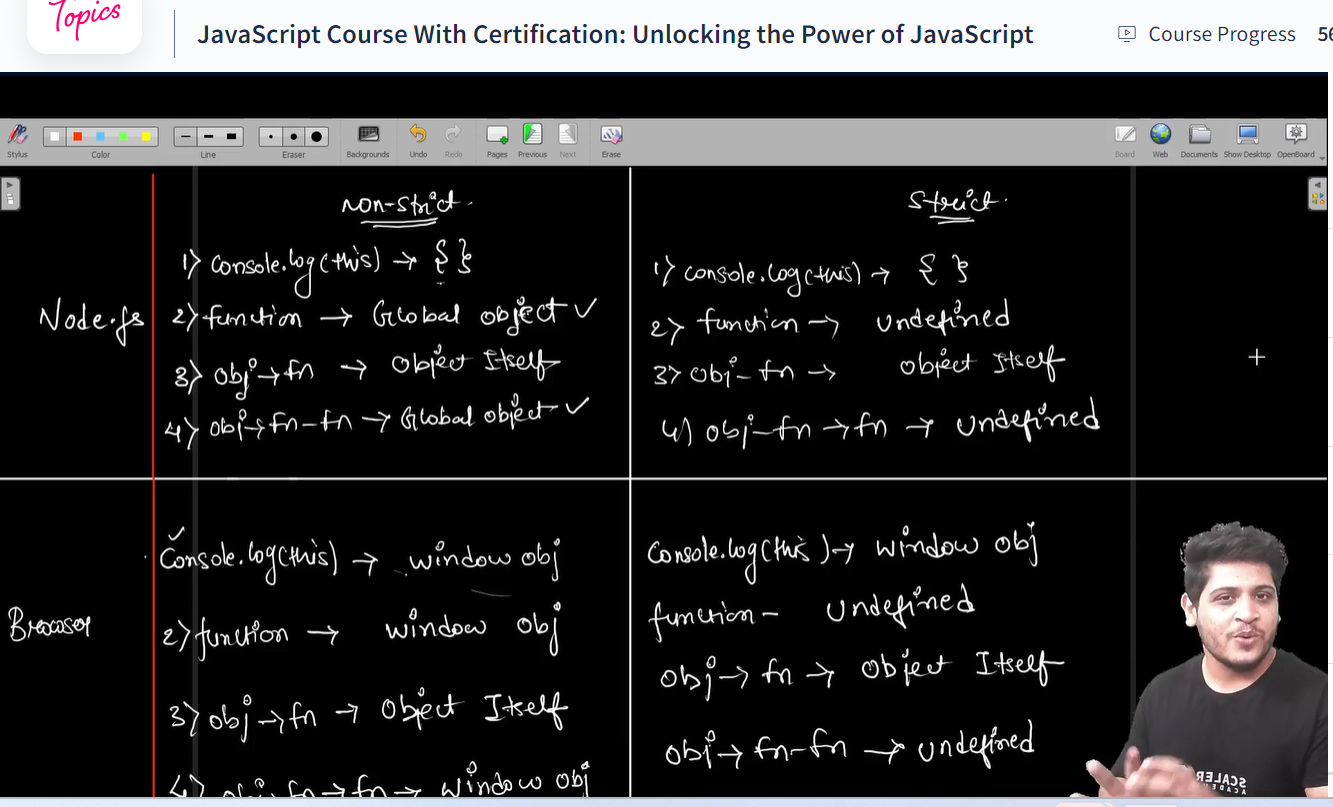 Topics
JavaScript Course With Certification: Unlocking the Power of JavaScript
Course Progress 56
Stylus
Color
Line
Eraser
Backgrounds
Undo
Redo
Pages
Previous
Next
Erase
Board
Web
Documents
Show Desktop
OpenBoard
Non-strict
Node.js
1) console.log(this) → { }
2) function → Global object ✓
3) obj → fn → Object Itself
4) obj → fn - fn → Global object ✓
Strict
1) console.log(this) → { }
2) function → undefined
3) obj - fn → object Itself
4) obj - fn → fn → undefined
Browser
✓
Console.log(this) → window obj
2) function → window obj
3) obj → fn → Object Itself
4) obj - fn → fn → window obj
Console.log(this) → window obj
function - undefined
obj → fn → Object Itself
obj → fn - fn → undefined
SCALER
ACADEMY